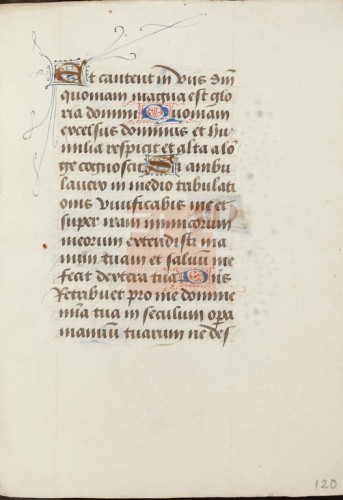 Et cantent in viis dni
quoniam magna est glo
ria domini Quoniam
excelsus dominus et hu
milia respicit et alta a lo
ge cognoscit Si ambu
lavero in medio tribulati
onis vivificabis me et
super iram inimicorum
meorum extendisti ma
num tuam et salvu me
fecit dextera tua Dns
Retribuet pro me domine
mia tua in seculum opa
manuu tuarum ne des
120